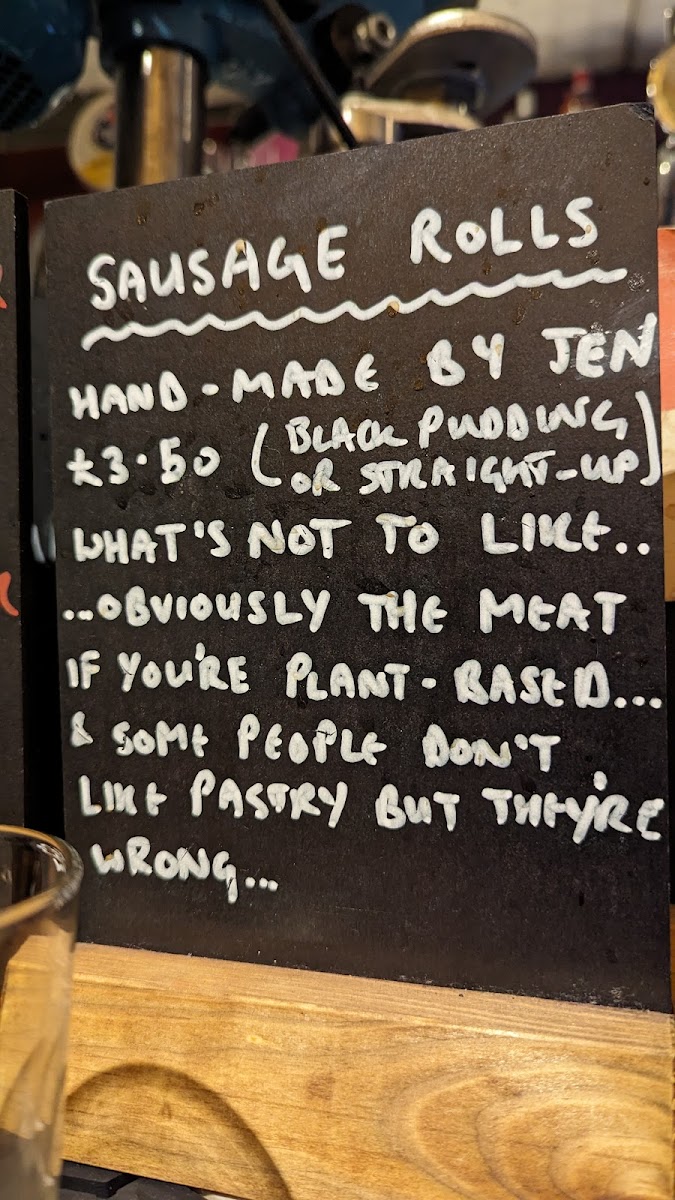 SAUSAGE ROLLS
HAND-MADE BY JEN
£3.50 (BLACK PUDDING
OR STRAIGHT-UP)
WHAT'S NOT TO LIKE..
..OBVIOUSLY THE MEAT
IF YOU'RE PLANT-BASED...
& SOME PEOPLE DON'T
LIKE PASTRY BUT THEY'RE
WRONG...